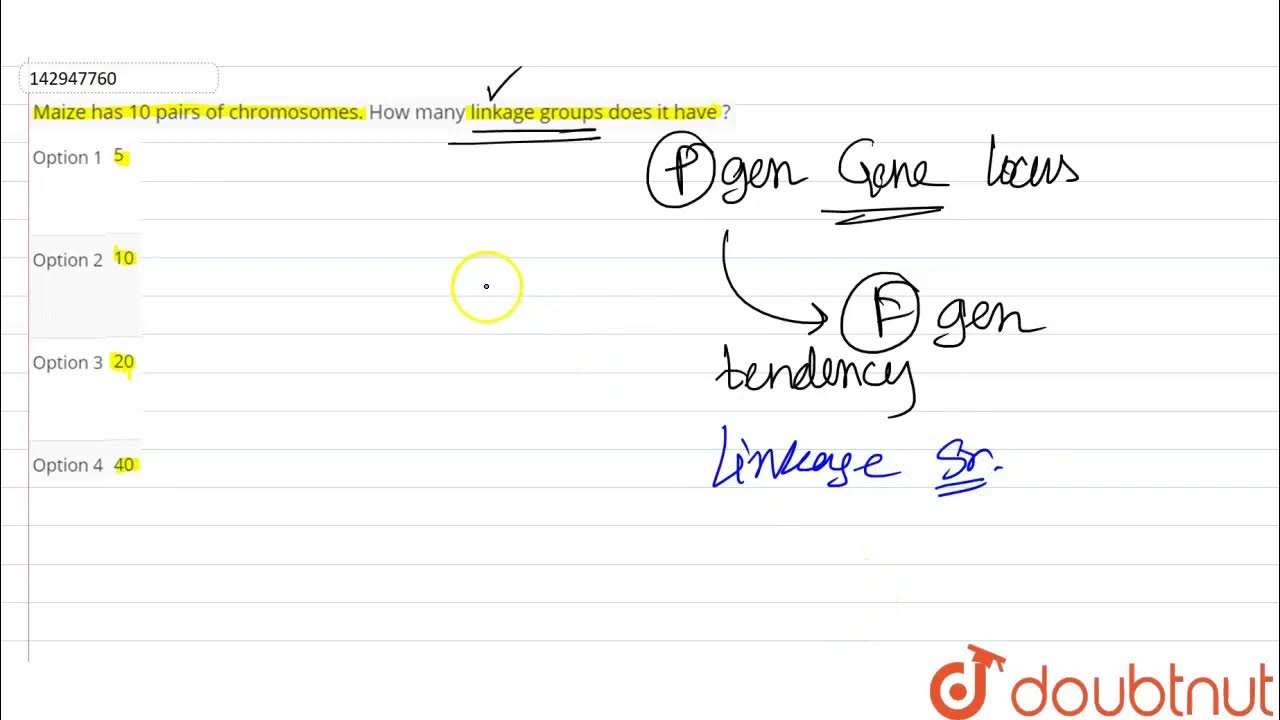 142947760
Maize has 10 pairs of chromosomes. How many linkage groups does it have ?
Option 1 5
Option 2 10
Option 3 20
Option 4 40
P gen Gene locus
F gen
tendency
Linkage Gr.
doubtnut